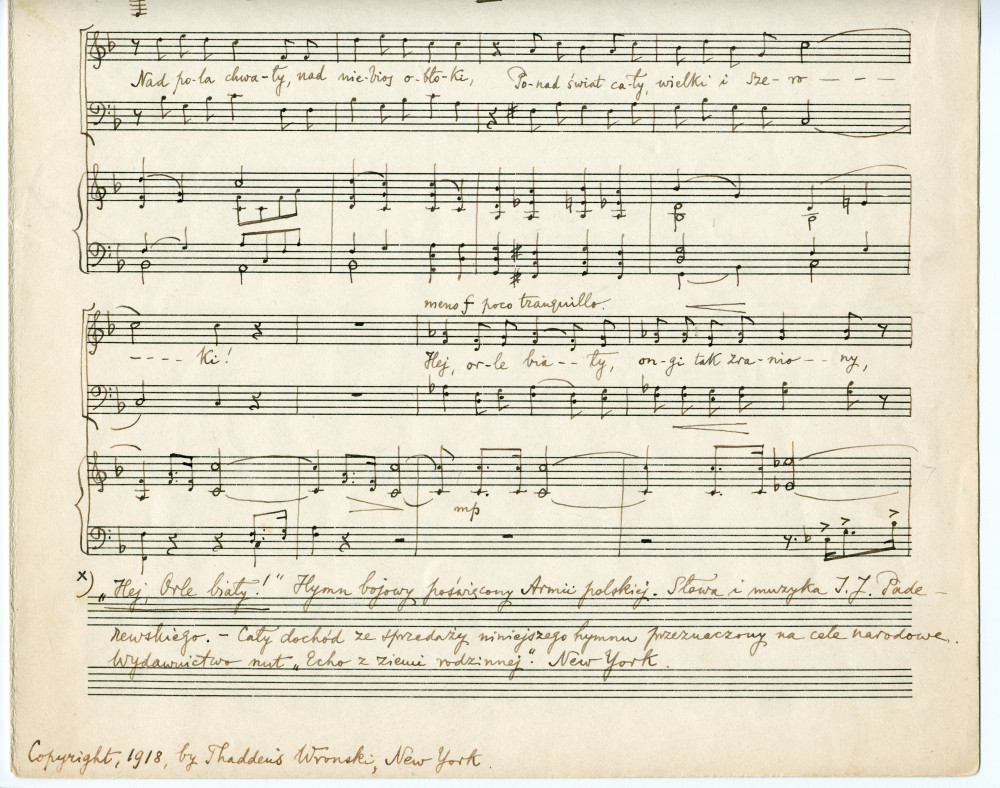 Nad po-la chwa-ły, nad nie-bios o-bło-ki, Po-nad świat ca-ły, wielki i sze-ro - - - -
meno f poco tranquillo.
- - - - ki! Hej, or-le bia - - ły, on-gi tak zra-nio - - ny,
mp
x) „Hej, Orle biały!" Hymn bojowy poświęcony Armii polskiej. Słowa i muzyka I. J. Pade-
rewskiego. - Cały dochód ze sprzedaży niniejszego hymnu przeznaczony na cele narodowe.
Wydawnictwo nut „Echo z ziemi rodzinnej". New York.
Copyright, 1918, by Thaddeus Wronski, New York.